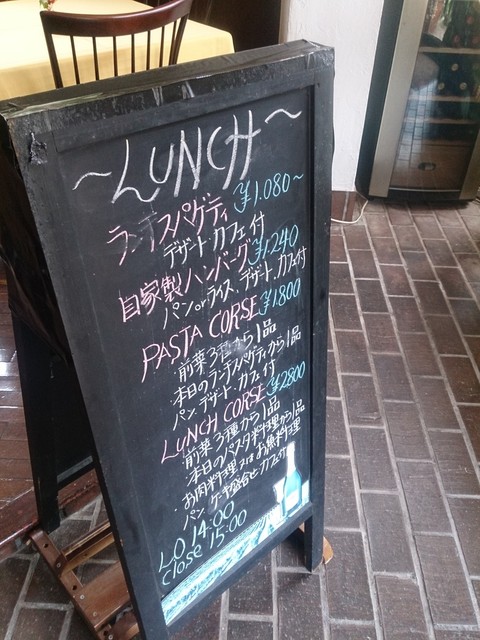 ~LUNCH~
ランチスパゲティ ¥1.080~
デザート カフェ付
自家製ハンバーグ ¥1.240
パン or ライス、デザート、カフェ付
PASTA CORSE ¥1800
前菜3種から1品
本日のランチスパゲティから1品
パン デザート カフェ付
LUNCH CORSE ¥2800
前菜3種から1品
本日のパスタ料理から1品
お肉料理又はお魚料理
パン ケーキ盛合せ カフェ付
LO 14:00
Close 15:00